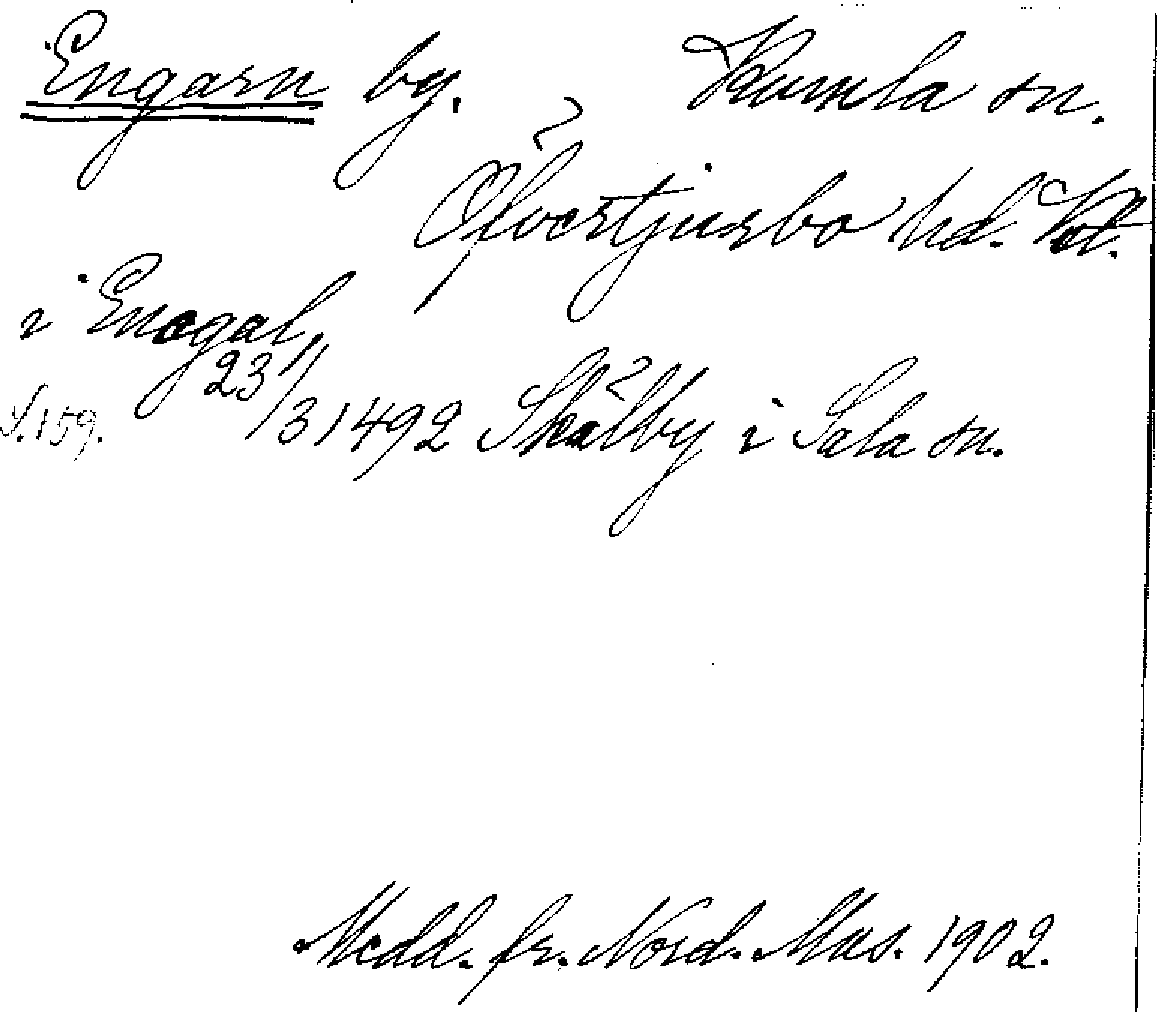 Engarn by. Kumla sn.
Öfvertjurbo hd. Vstm.
i Enegal,
S. 159. 23/3 1492 Skålby i Sala sn.
Medd. fr. Nord. Mus. 1902.